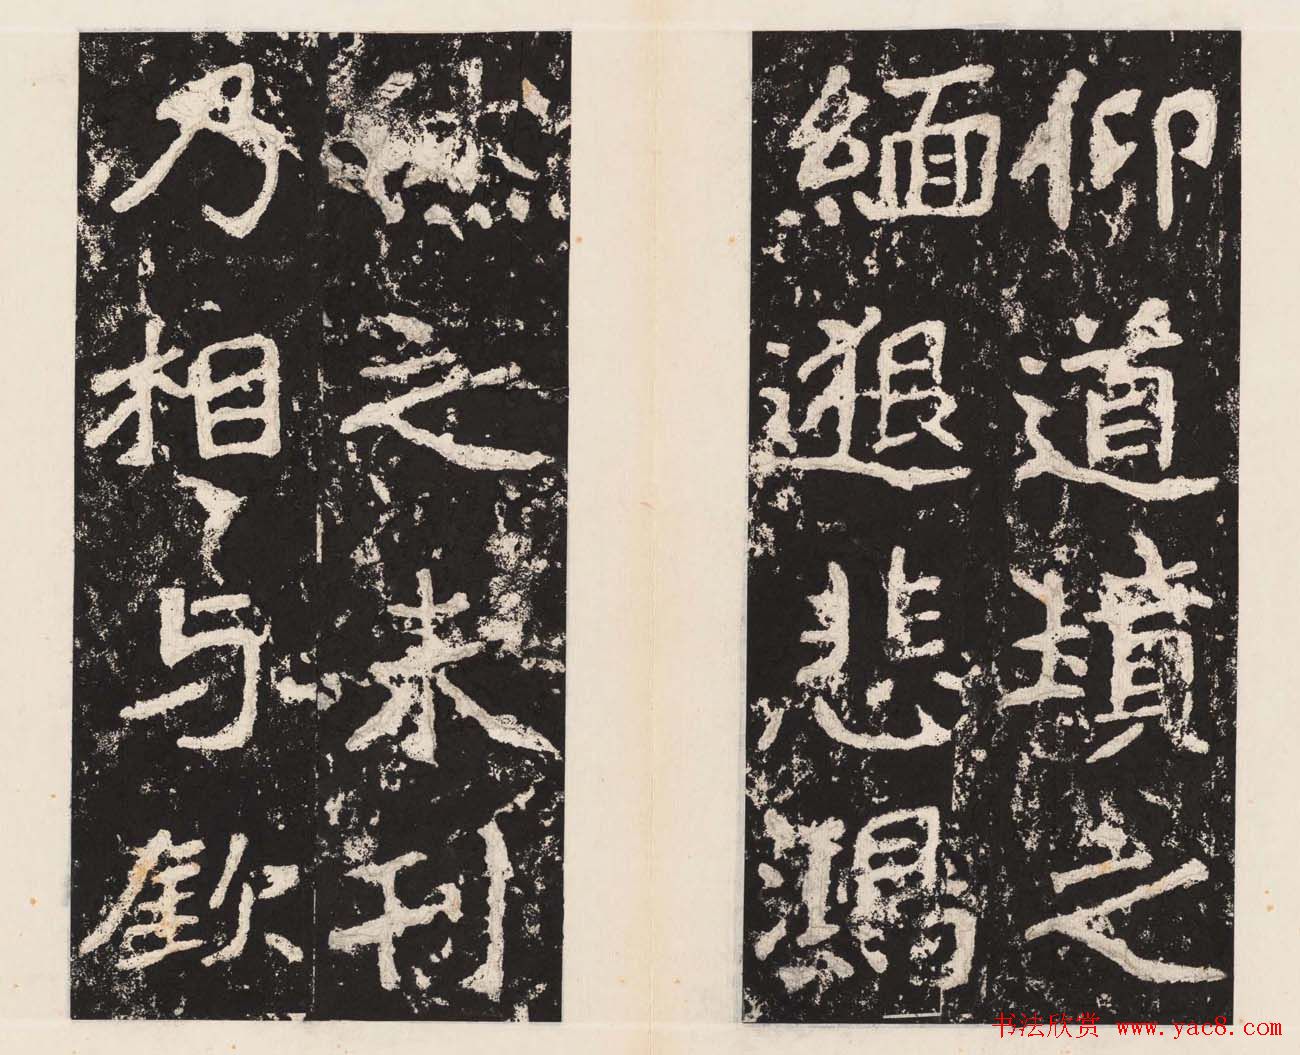 仰道墳之
緬邈悲鴻
之未刊
乃相与欽
书法欣赏 www.yac8.com